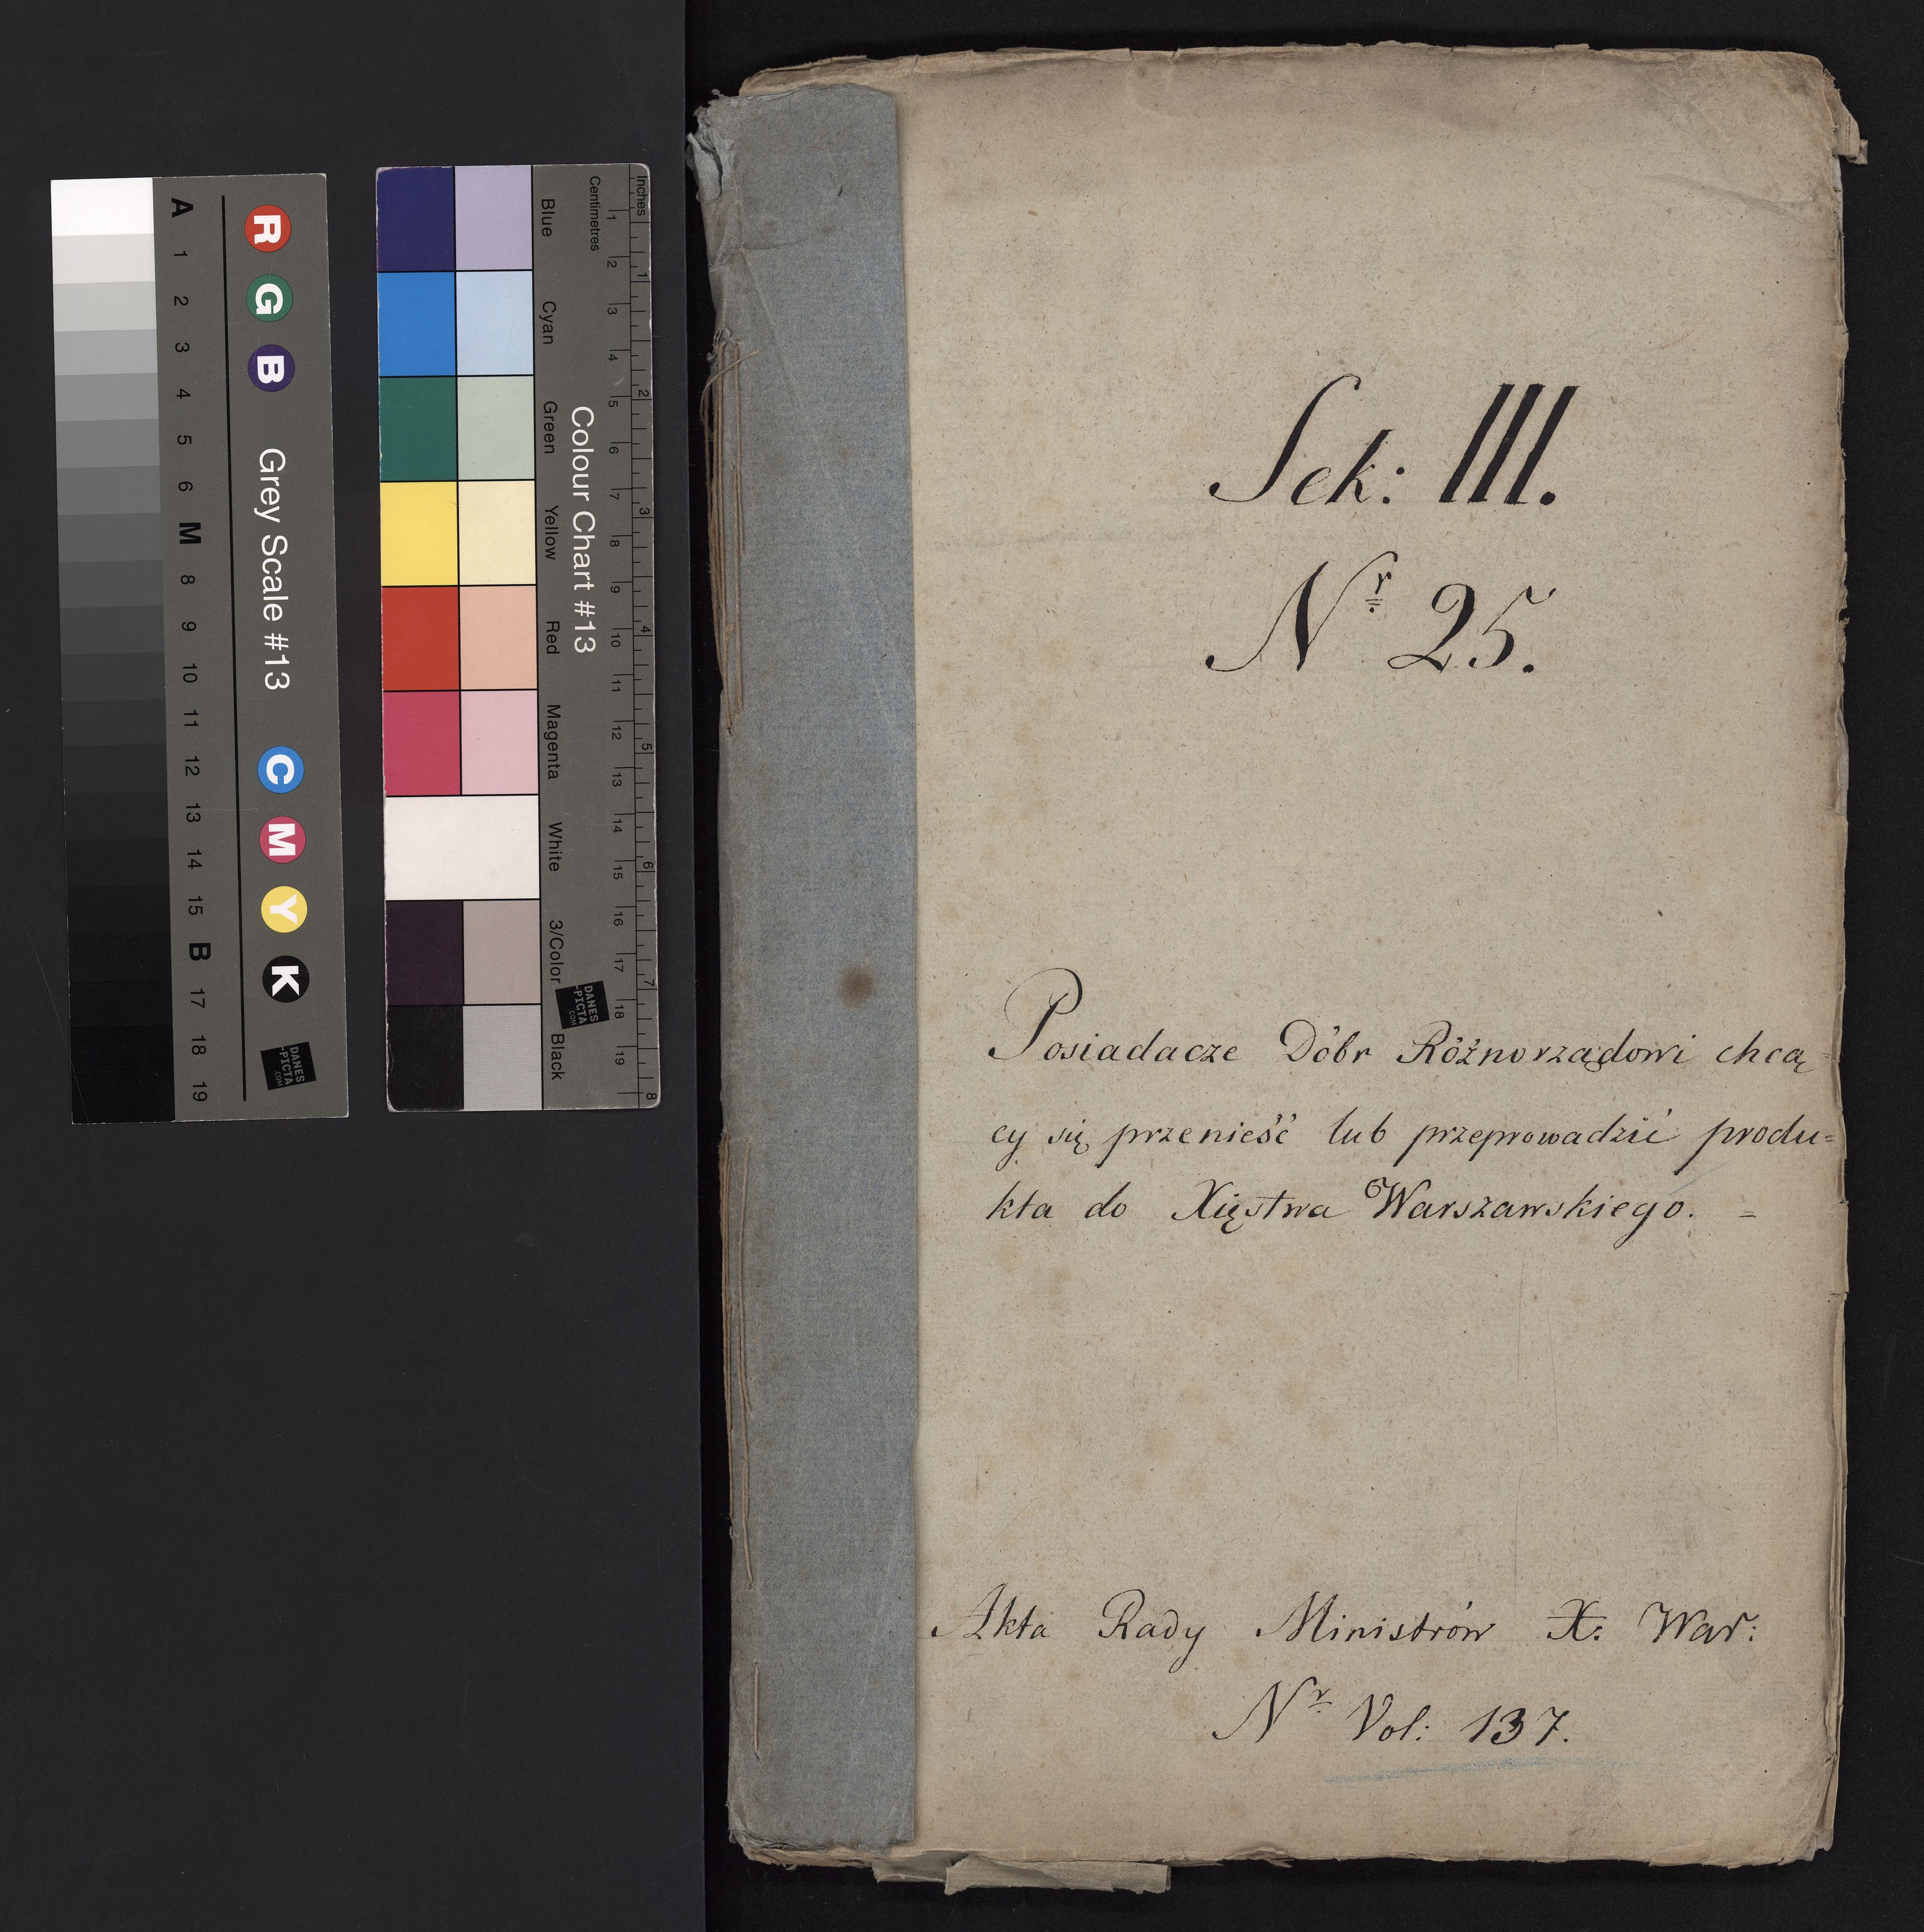 Sek: III.
Nr 25.
Posiadacze Dóbr Różnorządowi chcą=
cy się przenieść lub przeprowadzić produ=
kta do Xięstwa Warszawskiego. =
Akta Rady Ministrów X: War:
Nr Vol: 137.
A 1 2 3 4 5 6 M 8 9 10 11 12 13 14 15 B 17 18 19
R G B Grey Scale #13 C M Y K
DANES
-PICTA
.COM
Blue Cyan Green Yellow Red Magenta White 3/Color Black
Colour Chart #13
DANES
-PICTA
.COM
Centimetres 1 2 3 4 5 6 7 8 9 10 11 12 13 14 15 16 17 18 19
Inches 1 2 3 4 5 6 7 8